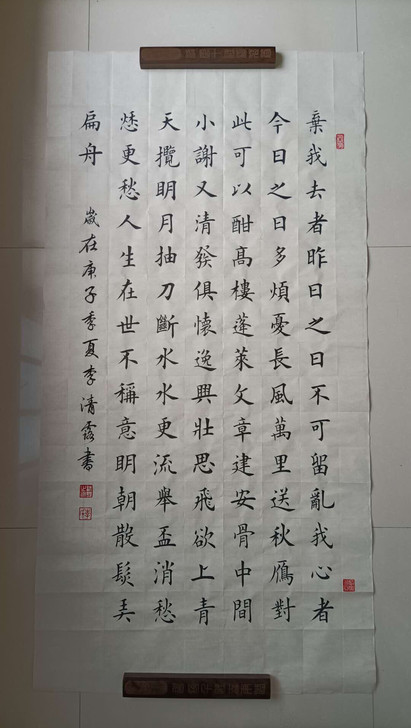 棄我去者昨日之日不可留亂我心者
今日之日多煩憂長風萬里送秋鴈對
此可以酣髙樓蓬萊文章建安骨中間
小謝又清發俱懷逸興壯思飛欲上青
天攬眀月抽刀斷水水更流舉盃消愁
愁更愁人生在世不稱意眀朝散髮弄
扁舟 歲在庚子季夏李清露書